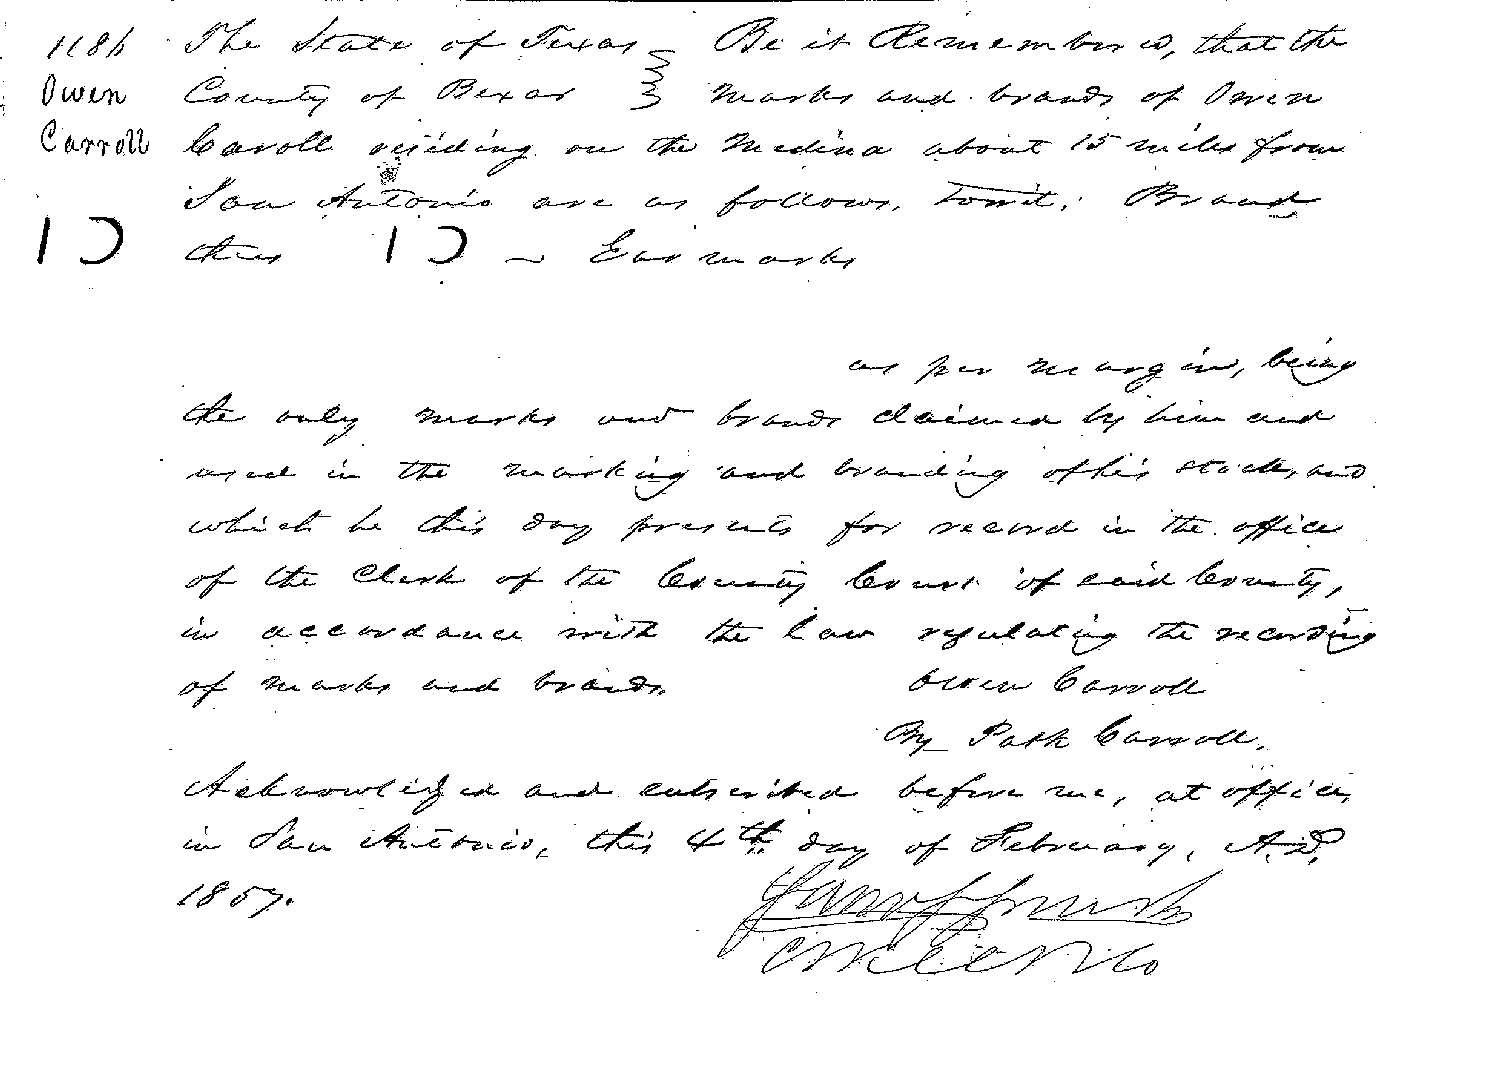 1186
Owen
Carroll
The State of Texas } Be it Remembered, that the
County of Bexar } marks and brands of Owen
Carroll residing on the Medina about 15 miles from
San Antonio are as follows, towit: Brand
thus — Ear marks
as per margin, being
the only marks and brands claimed by him and
used in the marking and branding of his stock, and
which he this day presents for record in the office
of the Clerk of the County Court of said County,
in accordance with the law regulating the recording
of marks and brands.
Owen Carroll
By Patk Carroll.
Acknowledged and subscribed before me, at office,
in San Antonio, this 4th day of February, A.D.
1857.